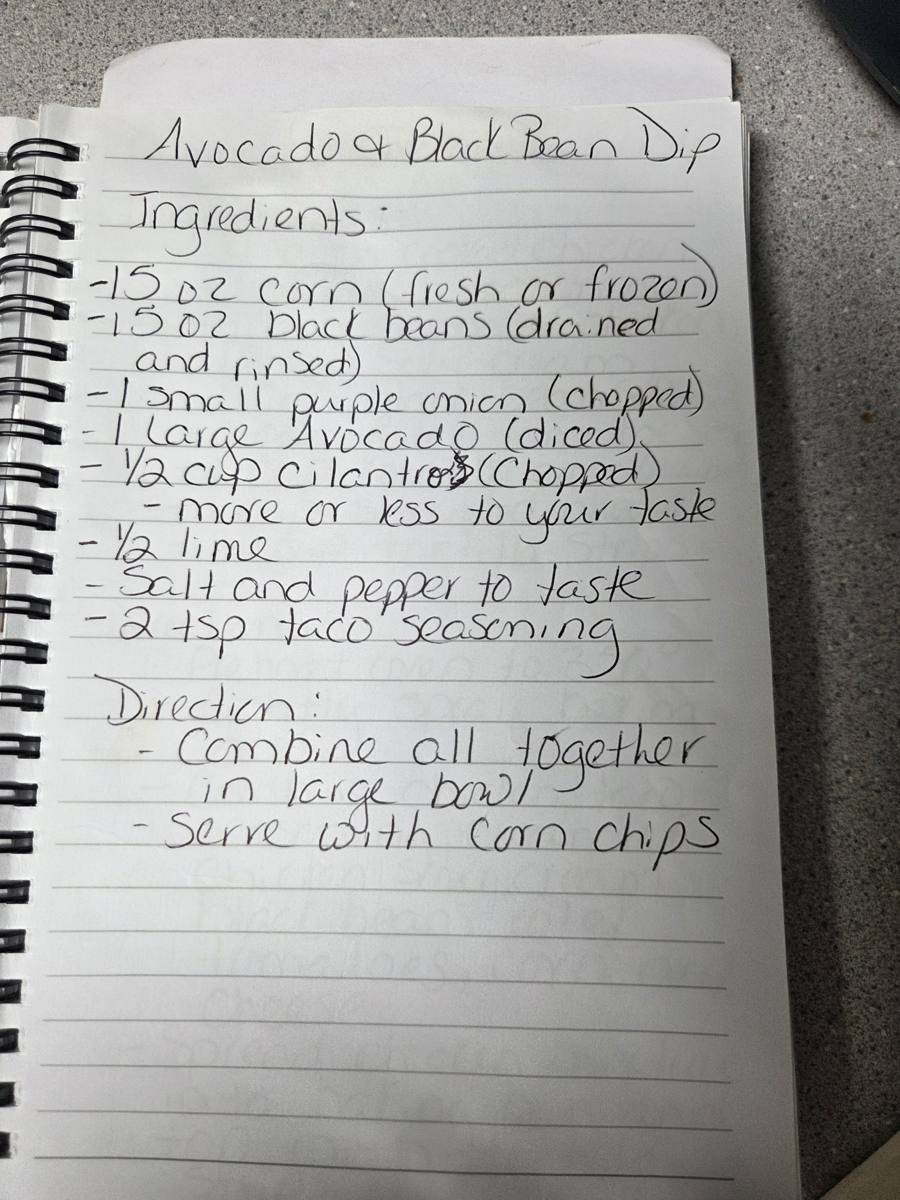 Avocado & Black Bean Dip
Ingredients:
-15 oz corn (fresh or frozen)
-15 oz black beans (drained
and rinsed)
-1 small purple onion (chopped)
-1 Large Avocado (diced)
- 1/2 cup cilantro (Chopped)
- more or less to your taste
- 1/2 lime
- Salt and pepper to taste
- 2 tsp taco seasoning
Direction:
- Combine all together
in large bowl
- Serve with corn chips